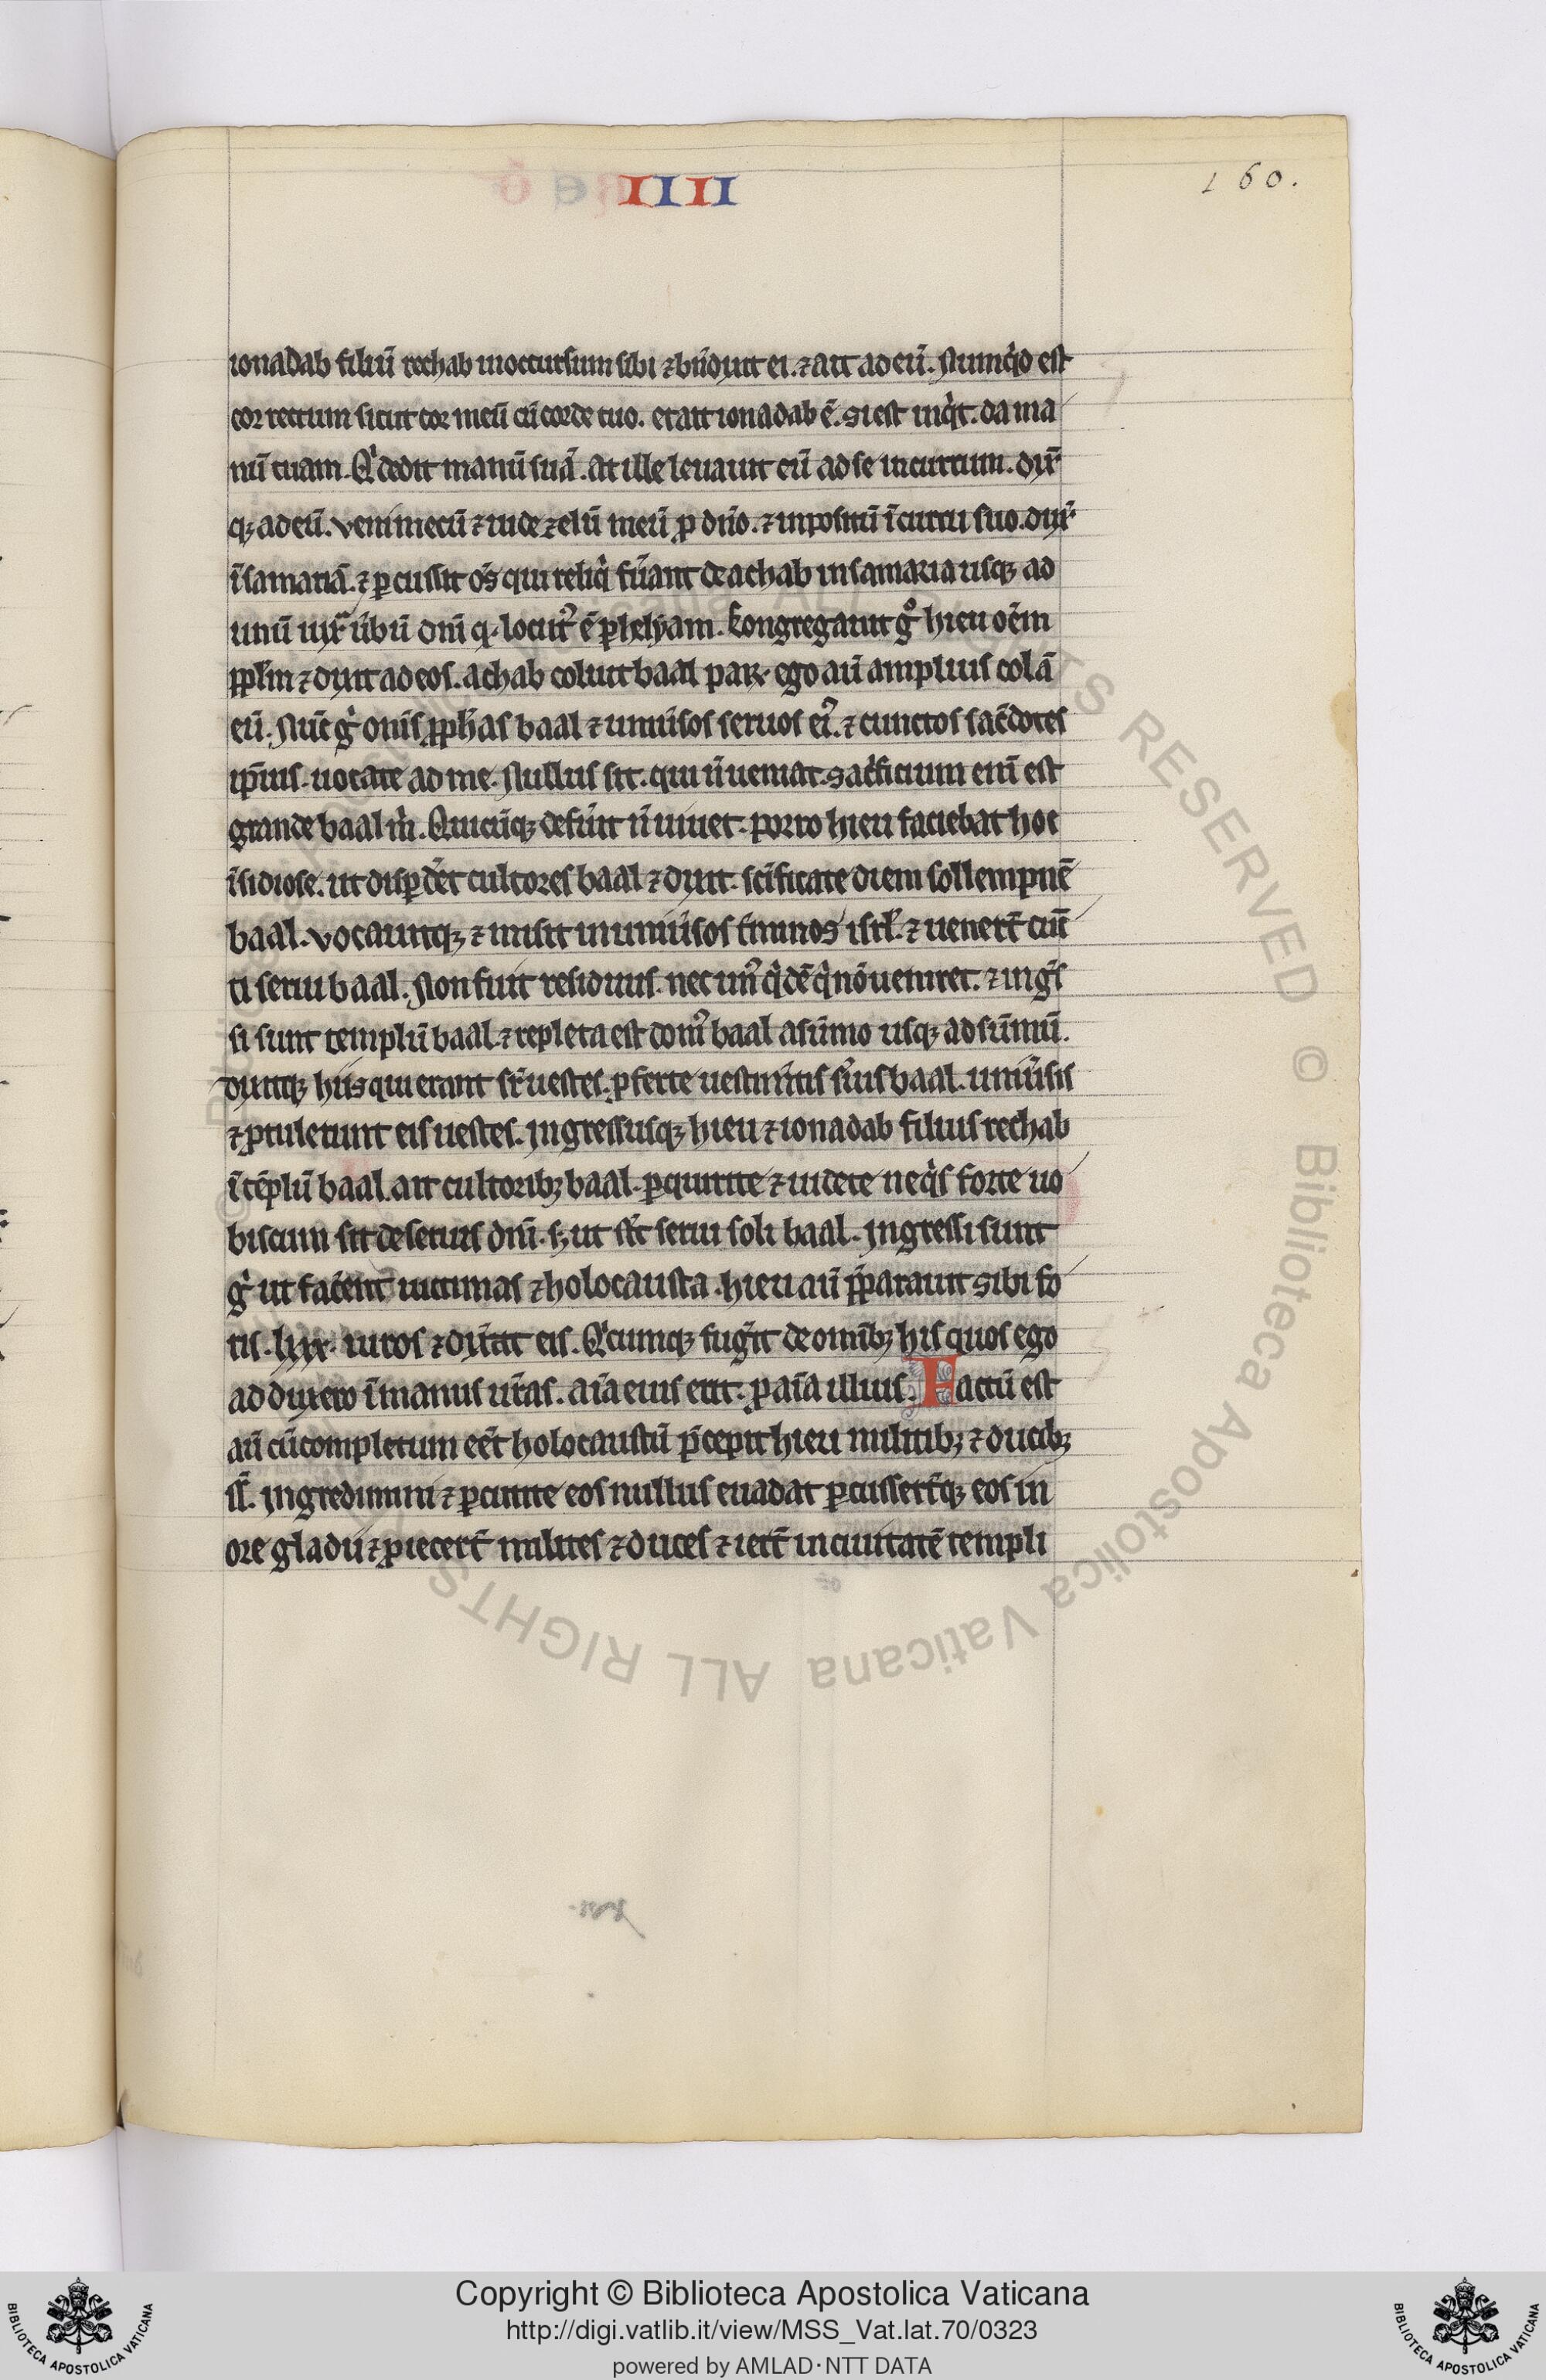 IIII
160.
ionadab filiū rechab inoccursum sibi ⁊ bn̄dixit ei. ⁊ ait ad eū. Nunqͥd est
cor rectum sicut cor meū cū corde tuo. et ait ionadab ē. Si est inqͥt. da ma
nū tuam. Qͥ dedit manū suā. at ille leuauit eū ad se in currum. dix̄
qꝫ ad eū. Veni mecū ⁊ uide zelū meū ꝓ dn̄o. ⁊ inpositū ī curru suo. dux̄
ī samariā. ⁊ ꝑcussit om̄s qui reliqͥ fūant de achab in samaria usqꝫ ad
unū iux̄ ūbū dn̄i q. locutꝰ ē ꝑ helyam. Congregauit gͦ hieu oēm
pplm̄ ⁊ dixit ad eos. achab coluit baal paꝝ. ego aū amplius colā
eū. Nūc gͥ om̄is ꝓph̄as baal ⁊ uniūsos seruos eiꝰ. ⁊ cunctos sac̄dotes
ip̄ius. uocate ad me. Nullus sit. qui n̄ ueniat. Sac̄ficium eni est
grande baal m̄. Quicūqꝫ defūit n̄ uiuet. porro hieu faciebat hoc
īsidiose. ut disꝑd̄et cultores baal ⁊ dixit. sc̄ificate diem sollempnē
baal. Vocauitqꝫ ⁊ misit in uniūsos t̄minos isrl̄. ⁊ uener̄t cūc
ti serui baal. Non fuit residuus. nec unꝰ qͥdē qͥ nō ueniret. ⁊ ingͥs
si sunt templū baal. ⁊ repleta est domꝰ baal a sūmo usqꝫ ad sūmū.
dixitqꝫ hiis qui erant sr̄ uestes. ꝓferte uestim̄tis s̄uis baal. uniūsis
⁊ ꝓtulerunt eis uestes. Ingressusqꝫ hieu ⁊ ionadab filius rechab
ī tēplū baal. ait cultoribꝫ baal. ꝑquirite ⁊ uidete neqͥs forte uo
biscum sit de seruis dn̄i. sꝫ ut s̄t serui soli baal. Ingressi sunt
gͥ ut fac̄ent uictimas ⁊ holocausta. hieu aū p̄parauit sibi fo
ris. lxxx. uiros ⁊ dix̄at eis. Qͥcumqꝫ fuḡit de om̄ibꝫ his quos ego
adduxero ī manus ur̄as. aīa eius erit. ꝓ aīa illius. Factū est
aū cū completum eēt holocaustū p̄cepit hieu militibꝫ ⁊ ducibꝫ
s̄. Ingredimini ⁊ ꝑcutite eos nullus euadat ꝑcusser̄tqꝫ eos in
ore gladii ⁊ ꝓiecer̄t milites ⁊ duces ⁊ ier̄t in ciuitatē templi
© Biblioteca Apostolica Vaticana ALL RIGHTS RESERVED
Copyright © Biblioteca Apostolica Vaticana
http://digi.vatlib.it/view/MSS_Vat.lat.70/0323
powered by AMLAD·NTT DATA
BIBLIOTECA APOSTOLICA VATICANA
BIBLIOTECA APOSTOLICA VATICANA